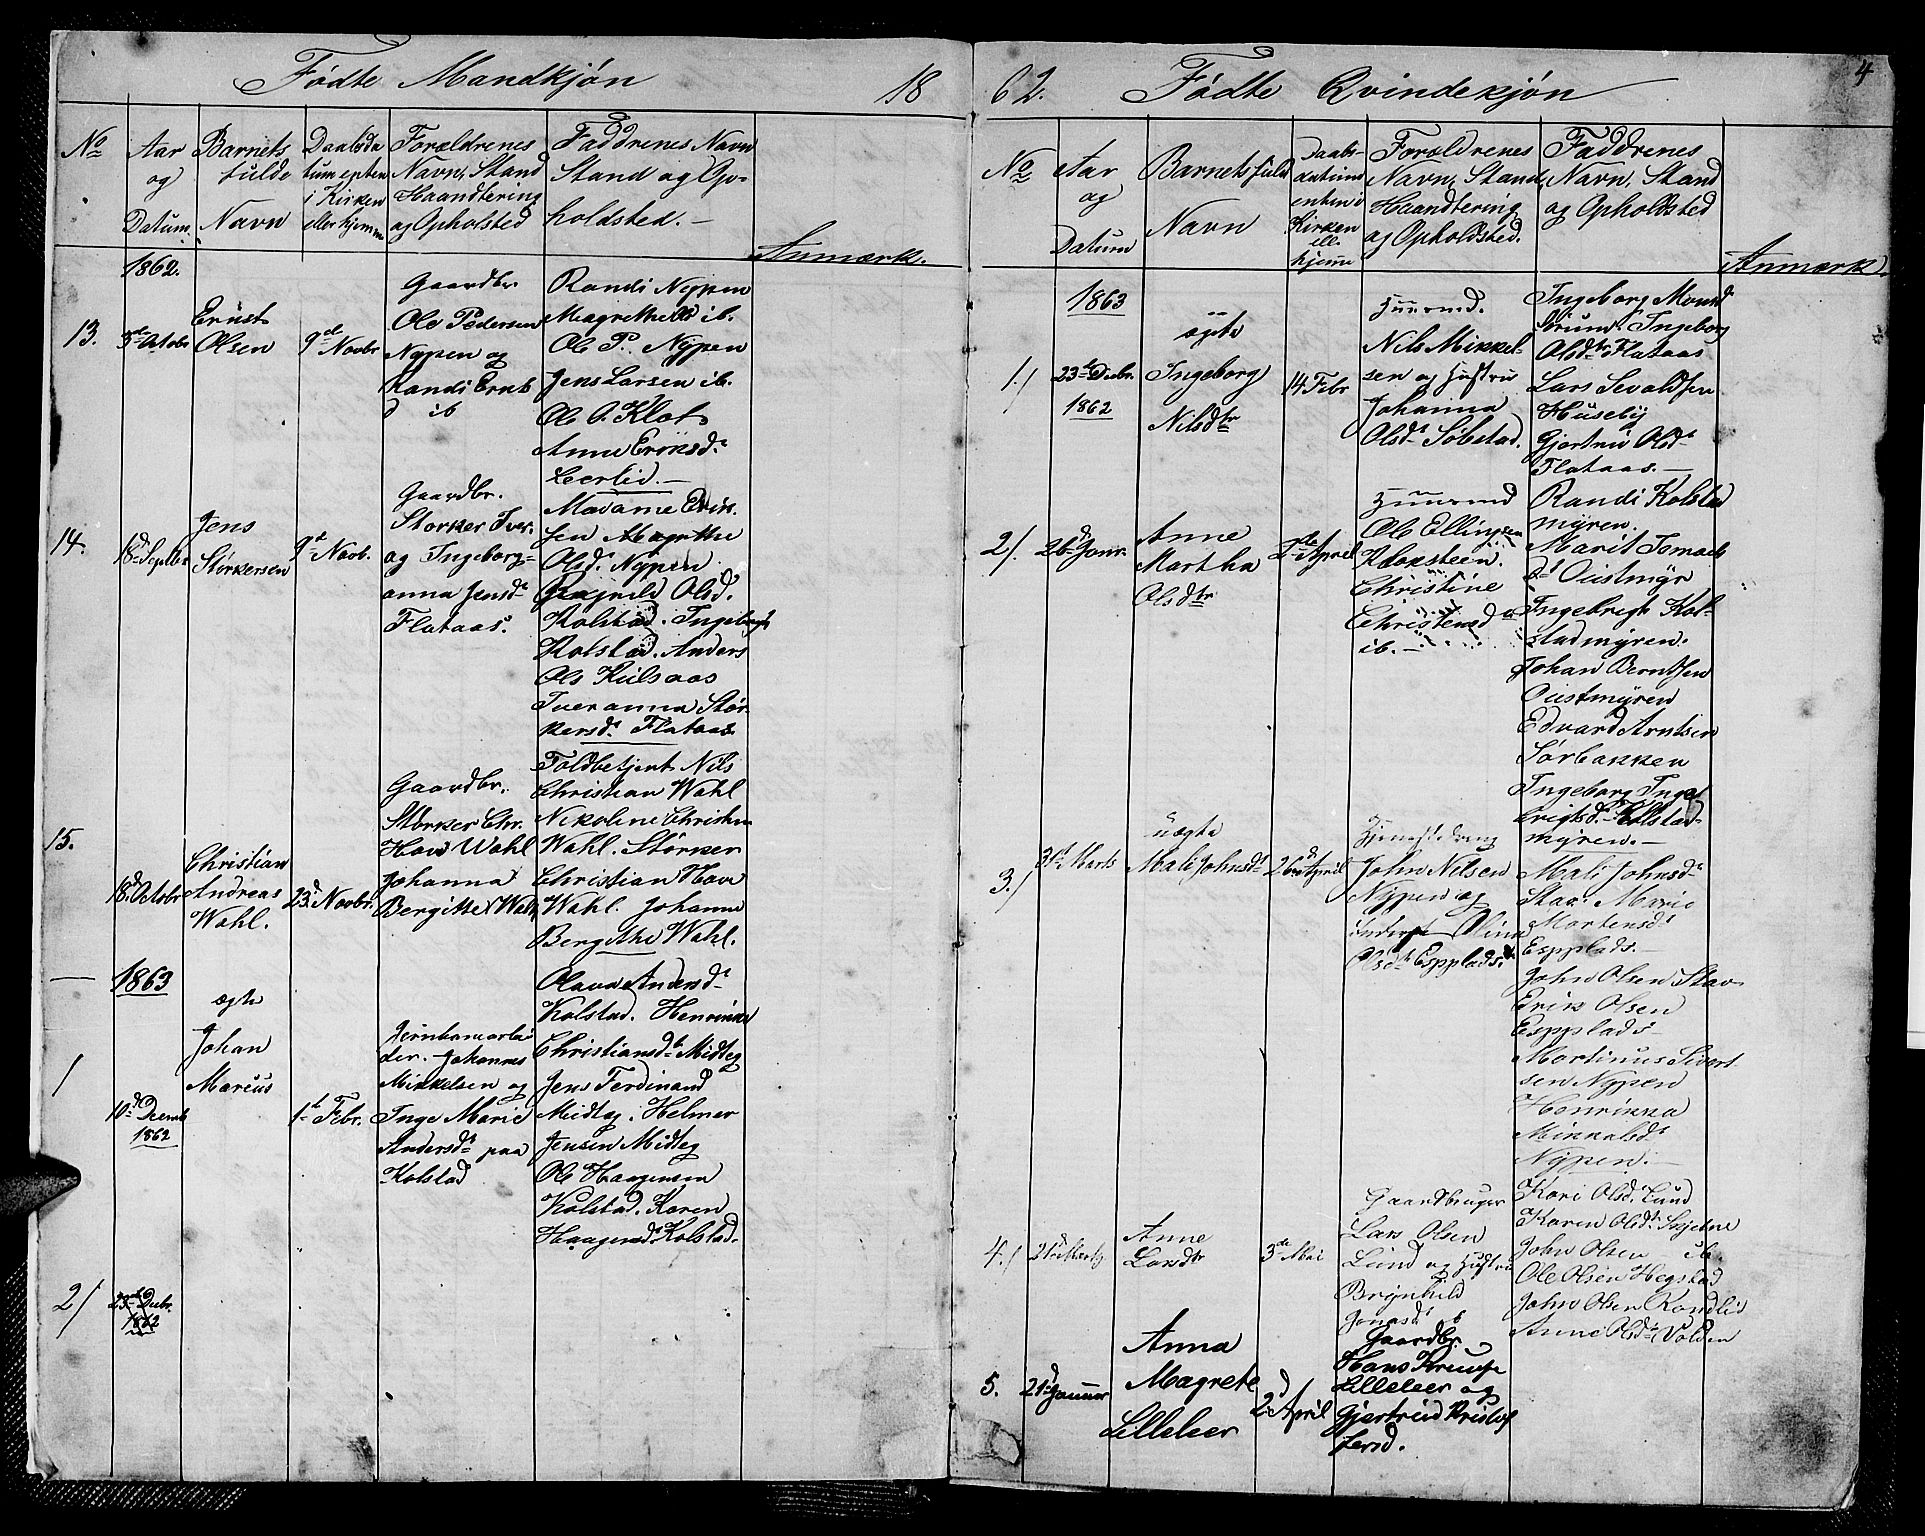 Fødte Mandkjøn 18
No
Aar
og
Datum
Barnets
fulde
Navn
Daabsda
tum enten
i Kirken
eller hjemme
Forældrenes
Navn, Stand
Haandtering
og Opholsted
Faddrenes Navn
Stand og Op-
holdsted.-
Anmærk.
1862.
13.
3de Octobr
Ernst
Olsen
9de Novbr
Gaardbr
Ole Pedersen
Nypen og
Randi Ernts
d ib
Randi Nypen
Magrethe ib.
Ole P. Nypen
Jens Larsen ib.
Ole O. Klot
Anne Eriksd.
Leerlid.-
14.
18d Septbr
Jens
Størkersen
9d Novb.
Gaardbr.
Størker Iver.
og Ingeborg-
anna Jensdt
Flataas.
Madame Erik-
sen Magrethe
Olsdt Nypen
Olsd.
Kolstad. Ingeborg
Kolstad. Anders
Ols Kulsaas
Iveranna Stør-
kersdt Flataas
15.
18d Octobr
Christian
Andreas
Wahl.
23d Novbr.
Gaardbr.
Størker Chr.
Hove Wahl
Johanna
Bergitte Wahl
Toldbetjent Nils
Christian Wahl
Nikoline Christine
Wahl. Størker
Christian Hove
Wahl. Johanna
Bergithe Wahl.
1863
1
10d Decemb
1862
ægte
Johan
Marius
1t Febr.
Jernbanearbei
der. Johannes
Mikkelsen og
Inge Marie
Andersdt paa
Kolstad
Olava Andersdt
Kolstad. Henrikka
Christiansdt Midteg
Jens Ferdinand
Midteg. Helmer
Jensen Midteg
Ole Haagensen
Kolstad. Karen
Haagensdt Kolstad.
2/
23de Decbr.
1862
62. Fødte Qvindekjøn 4
No
Aar
og
Datum
Barnets fulde
Navn
Daabs-
datum
enten i
Kirken
ell.
hjeme
Forældrenes
Navn, Stand,
Haandtering
og Opholdsted.
Faddrenes
Navn, Stand
og Opholdsted
Anmærk
1863
1./
23de Decbr.
1862
ægte
Ingeborg
Nilsdtr
14 Febr
Huusmd.
Nils Mikkel-
sen og Hustru
Johanna
Olsdt Søbstad.
Ingeborg
Ingeborg
Olsdtr Flataas
Lars Sevaldsen
Huseby
Gjertru Olsdt
Flataas.-
2/.
26d Janr.
Anne
Martha
Olsdtr
2de April
Huusmd
Ole Ellingsen
Kloksteen.
Christine
Christensd
ib.-
Randi Kolsta
myren.
Marit Tomas
dt Oustmyr
Ingebrigt Kol-
stadmyren.
Johan Berntsen
Oustmyren
Edvard Arntsen
Sørbakken
Ingeborg Inge
brigtsd. Kolstad-
myren.-
3./
31t Marts
uægte
Mali Johnsdt
26d April
John Nilsen
Nypen og
Olina
Olsdt Espplads.
Mali Johnsdt
Stav. Marie
Mortensdt
Espplads.-
John Olsen Stav
Erik Olsen
Espplads
Martinus Sivert
sen Nypen
Henrikka
Mikkelsdt
Nypen.-
4./
21d Marts
Anne
Larsdtr
3de Mai
Gaardbruger
Lars Olsen
Lund og Hustru
Brynhild
Jonasdt ib
Kari Olsdt Lund
Karen Olsdt Skjetne
John Olsen ib
Ole Olsen Hegstad
John Olsen Rondlid
Anne Olsdt Volden
5.
21d Januar
Anna
Magrete
Lilleleer
2d April
Gaardbr.
Hans Kruse
Lilleleer og
Gjertrud Kristof
fersd.